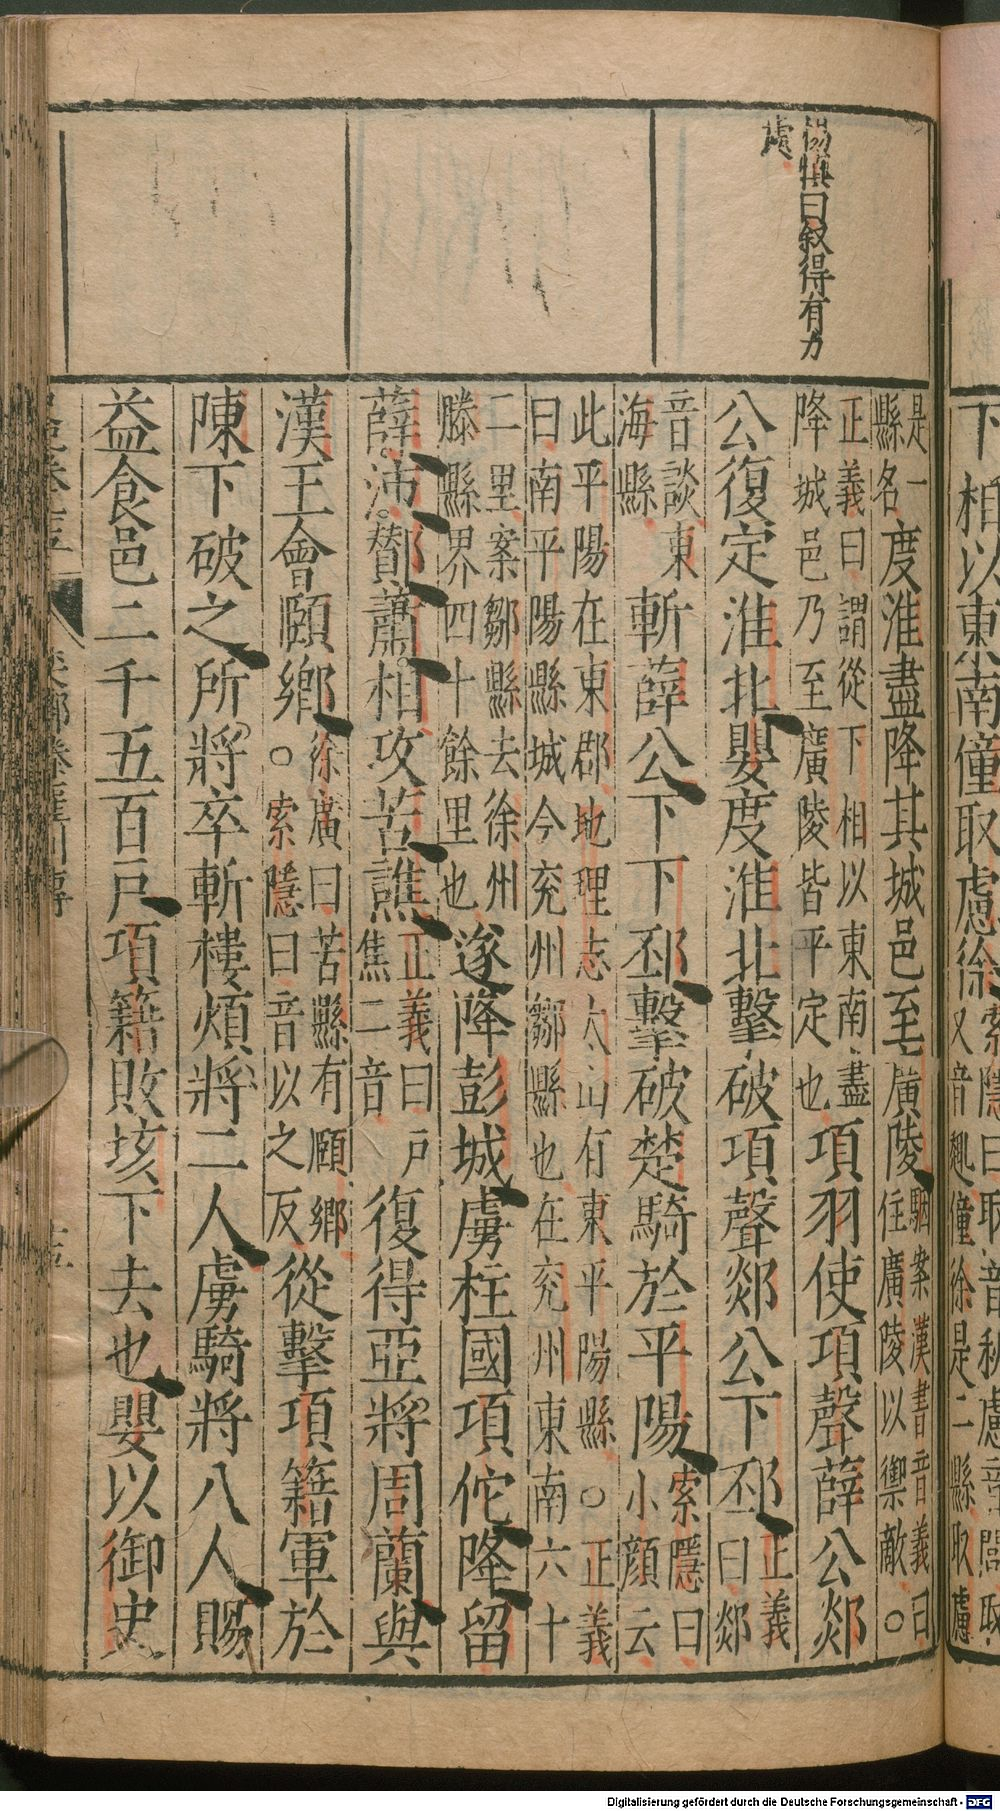 下相以東南僮取慮徐
索隱曰取音秋慮音閭取
又音趣僮徐是二縣取慮
楊慎曰叙得有力
處
是一
縣名
度淮盡降其城邑至廣陵
駰案漢書音義曰
住廣陵以禦敵○
正義曰謂從下相以東南盡
降城邑乃至廣陵皆平定也
項羽使項聲薛公郯
公復定淮北嬰度淮北擊破項聲郯公下邳
正義
曰郯
音談東
海縣
斬薛公下下邳擊破楚騎於平陽
索隱曰
小顔云
此平陽在東郡地理志太山有東平陽縣○正義
曰南平陽縣城今兖州鄒縣也在兖州東南六十
二里案鄒縣去徐州
滕縣界四十餘里也
遂降彭城虜柱國項佗降留
薛沛酇蕭相攻苦譙
正義曰戶
焦二音
復得亞將周蘭與
漢王會頤鄉
徐廣曰苦縣有頤鄉
○索隱曰音以之反
從擊項籍軍於
陳下破之所將卒斬樓煩將二人虜騎將八人賜
益食邑二千五百戶項籍敗垓下去也嬰以御史
Digitalisierung gefördert durch die Deutsche Forschungsgemeinschaft - DFG